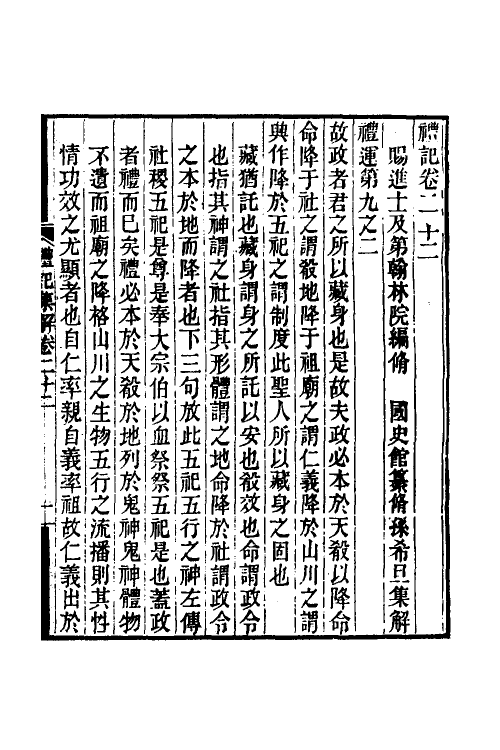 禮記卷二十二
賜進士及第翰林院編脩　國史館纂脩孫希旦集解
禮運第九之二
故政者君之所以藏身也是故夫政必本於天殽以降命
命降于社之謂殽地降于祖廟之謂仁義降於山川之謂
興作降於五祀之謂制度此聖人所以藏身之固也
藏猶託也藏身謂身之所託以安也殽效也命謂政令
也指其神謂之社指其形體謂之地命降於社謂政令
之本於地而降者也下三句放此五祀五行之神左傳
社稷五祀是尊是奉大宗伯以血祭祭五祀是也蓋政
者禮而已矣禮必本於天殽於地列於鬼神鬼神體物
不遺而祖廟之降格山川之生物五行之流播則其性
情功效之尤顯者也自仁率親自義率祖故仁義出於
禮記集解卷二十二　一